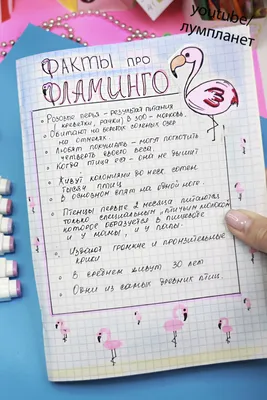 youtube/
лумпланет
ФАКТЫ ПРО
ФЛАМИНГО
• Розовые перья - результат питания
(креветки, рачки) В ЗОО - морковь.
• Обитают на берегах соленых озер,
на отмелях.
• Любят покушать - могут поглотить
четверть своего веса.
• Когда птица ест - она не дышит!
• Живут колониями до неск. сотен
тысяч птиц
• В основном спят на одной ноге.
• Птенцы первые 2 месяца питаются
только специальным "птичьим молоком"
которое образуется в пищеводе
и у мамы, и у папы.
• Издают громкие и пронзительные
крики
• В среднем живут 30 лет
• Одни из самых древних птиц.